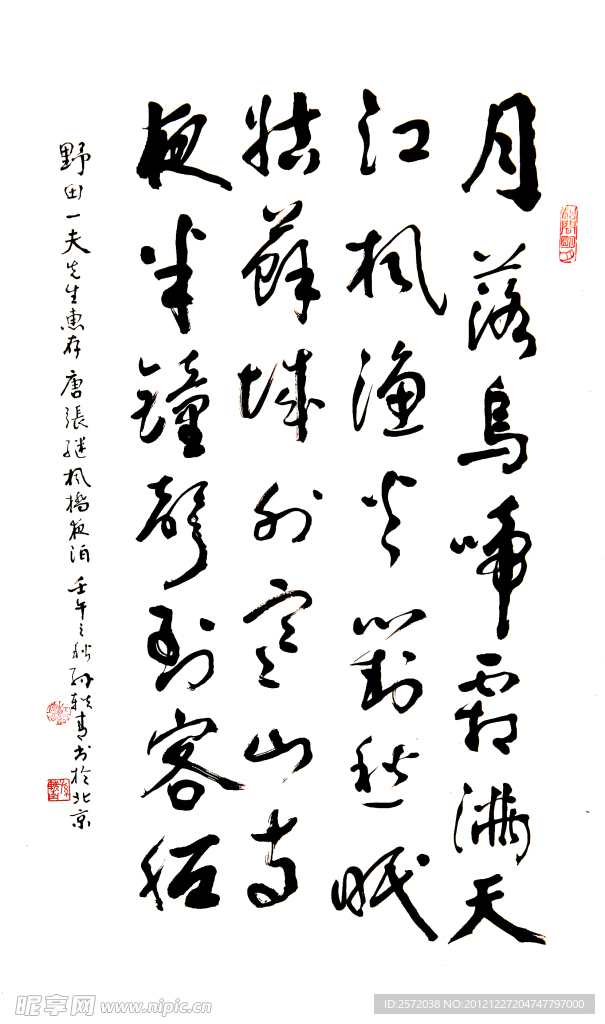 月落烏啼霜满天
江枫渔火對愁眠
姑蘇城外寒山寺
夜半鐘聲到客船
野田一夫先生惠存 唐張继枫橋夜泊 壬午之秋孙轶青书於北京
昵享网 www.nipic.cn
ID:2572038 NO:20121227204747797000